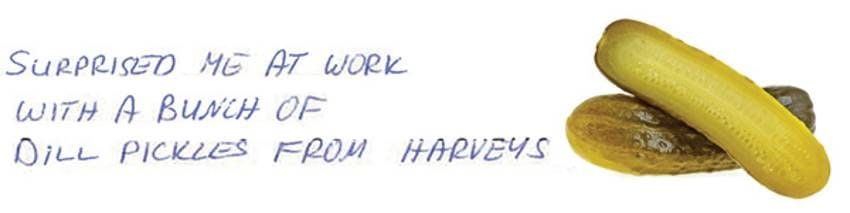 SURPRISED ME AT WORK
WITH A BUNCH OF
DILL PICKLES FROM HARVEYS